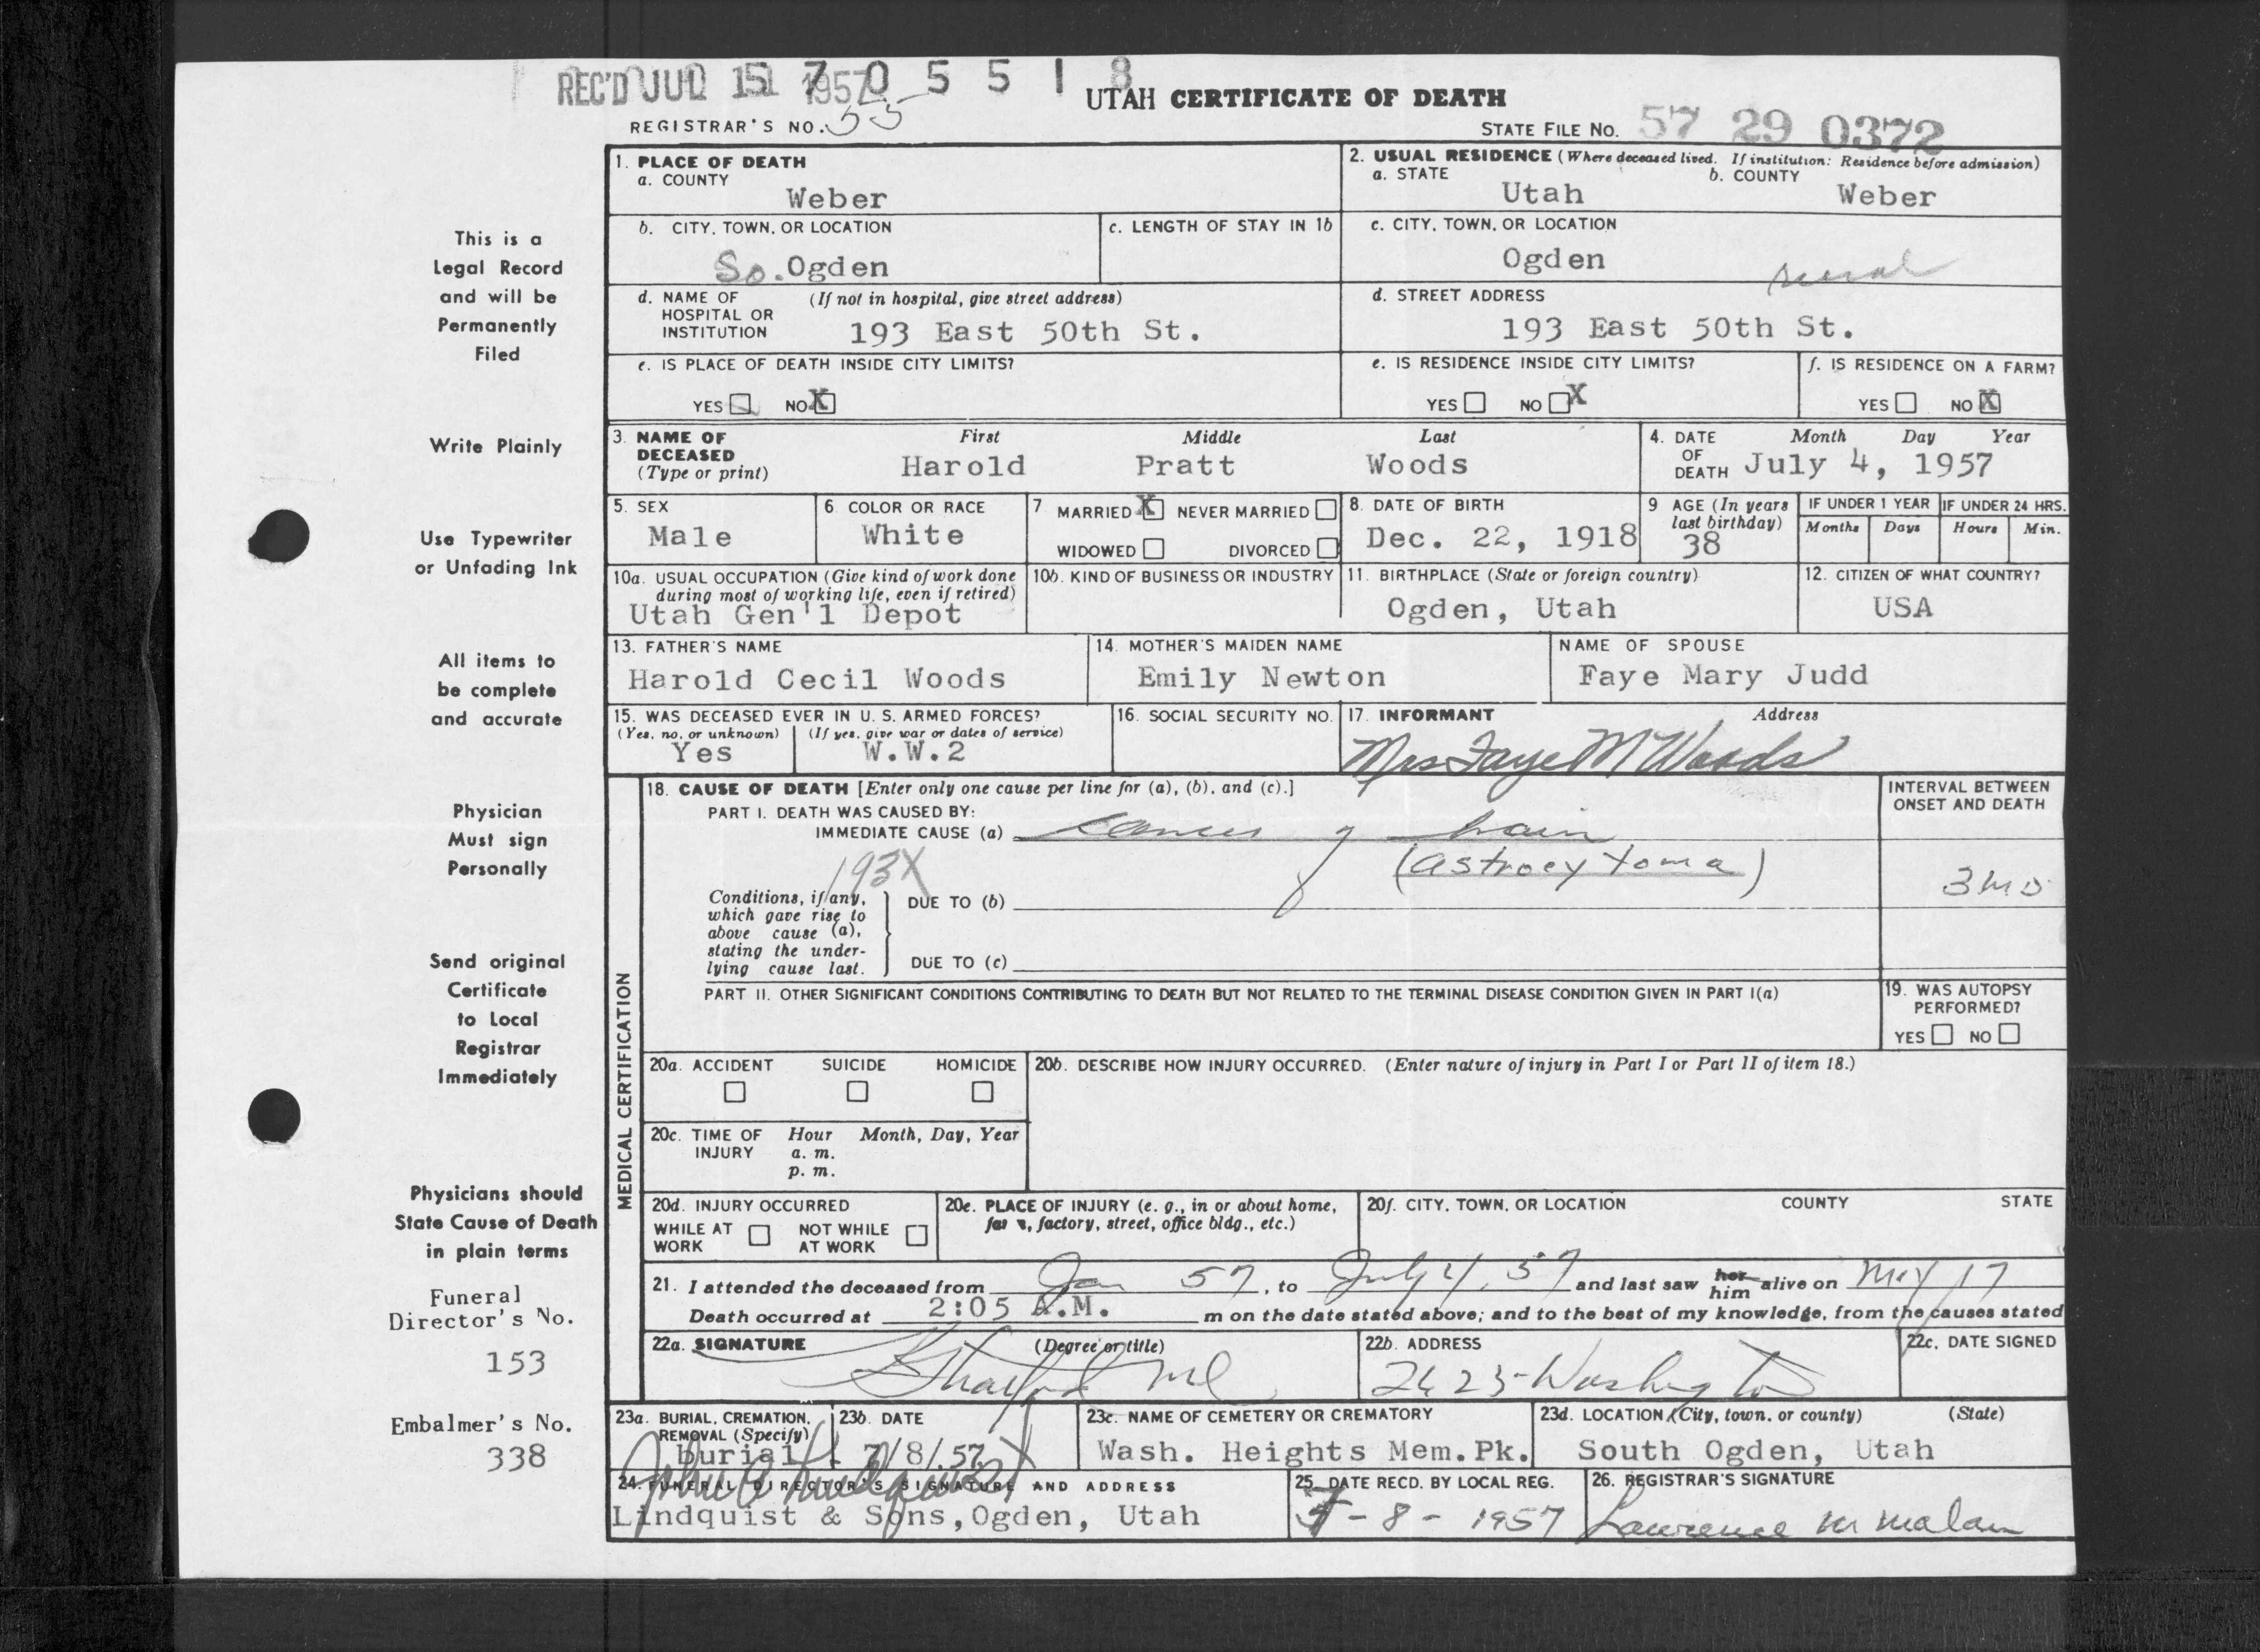 REC'D JUL 15 1957 0 5 5 1 8
UTAH CERTIFICATE OF DEATH
REGISTRAR'S NO. 55
STATE FILE NO. 57 29 0372
This is a
Legal Record
and will be
Permanently
Filed
Write Plainly
Use Typewriter
or Unfading Ink
All items to
be complete
and accurate
Physician
Must sign
Personally
Send original
Certificate
to Local
Registrar
Immediately
Physicians should
State Cause of Death
in plain terms
Funeral
Director's No.
153
Embalmer's No.
338
1. PLACE OF DEATH
a. COUNTY
Weber
2. USUAL RESIDENCE (Where deceased lived. If institution: Residence before admission)
a. STATE b. COUNTY
Utah Weber
b. CITY, TOWN, OR LOCATION
So. Ogden
c. LENGTH OF STAY IN 1b
c. CITY, TOWN, OR LOCATION
Ogden rural
d. NAME OF (If not in hospital, give street address)
HOSPITAL OR
INSTITUTION 193 East 50th St.
d. STREET ADDRESS
193 East 50th St.
e. IS PLACE OF DEATH INSIDE CITY LIMITS?
YES NO X
e. IS RESIDENCE INSIDE CITY LIMITS?
YES NO X
f. IS RESIDENCE ON A FARM?
YES NO X
3. NAME OF First Middle Last
DECEASED
(Type or print) Harold Pratt Woods
4. DATE Month Day Year
OF
DEATH July 4, 1957
5. SEX
Male
6. COLOR OR RACE
White
7 MARRIED X NEVER MARRIED
WIDOWED DIVORCED
8. DATE OF BIRTH
Dec. 22, 1918
9 AGE (In years
last birthday)
38
IF UNDER 1 YEAR IF UNDER 24 HRS.
Months Days Hours Min.
10a. USUAL OCCUPATION (Give kind of work done
during most of working life, even if retired)
Utah Gen'l Depot
10b. KIND OF BUSINESS OR INDUSTRY
11. BIRTHPLACE (State or foreign country)
Ogden, Utah
12. CITIZEN OF WHAT COUNTRY?
USA
13. FATHER'S NAME
Harold Cecil Woods
14. MOTHER'S MAIDEN NAME
Emily Newton
NAME OF SPOUSE
Faye Mary Judd
15. WAS DECEASED EVER IN U. S. ARMED FORCES?
(Yes, no, or unknown) (If yes, give war or dates of service)
Yes W.W.2
16. SOCIAL SECURITY NO.
17. INFORMANT Address
Mrs Faye M Woods
MEDICAL CERTIFICATION
18. CAUSE OF DEATH [Enter only one cause per line for (a), (b), and (c).]
PART I. DEATH WAS CAUSED BY:
IMMEDIATE CAUSE (a) Cancer of brain
(astrocytoma)
193X
Conditions, if any,
which gave rise to
above cause (a),
stating the under-
lying cause last.
DUE TO (b)
DUE TO (c)
INTERVAL BETWEEN
ONSET AND DEATH
3 mo
PART II. OTHER SIGNIFICANT CONDITIONS CONTRIBUTING TO DEATH BUT NOT RELATED TO THE TERMINAL DISEASE CONDITION GIVEN IN PART I(a)
19. WAS AUTOPSY
PERFORMED?
YES NO
20a. ACCIDENT SUICIDE HOMICIDE
20b. DESCRIBE HOW INJURY OCCURRED. (Enter nature of injury in Part I or Part II of item 18.)
20c. TIME OF Hour Month, Day, Year
INJURY a. m.
p. m.
20d. INJURY OCCURRED
WHILE AT NOT WHILE
WORK AT WORK
20e. PLACE OF INJURY (e. g., in or about home,
farm, factory, street, office bldg., etc.)
20f. CITY, TOWN, OR LOCATION COUNTY STATE
21. I attended the deceased from Jan 57, to July 4, 57 and last saw her him alive on May 17
Death occurred at 2:05 A.M. m on the date stated above; and to the best of my knowledge, from the causes stated
22a. SIGNATURE (Degree or title)
MD
22b. ADDRESS
2425 Washington
22c. DATE SIGNED
23a. BURIAL, CREMATION,
REMOVAL (Specify)
burial
23b. DATE
7/8/57
23c. NAME OF CEMETERY OR CREMATORY
Wash. Heights Mem.Pk.
23d. LOCATION (City, town, or county) (State)
South Ogden, Utah
24. FUNERAL DIRECTOR'S SIGNATURE AND ADDRESS
John A Lindquist
Lindquist & Sons, Ogden, Utah
25. DATE RECD. BY LOCAL REG.
7 - 8 - 1957
26. REGISTRAR'S SIGNATURE
Lawrence M Malan